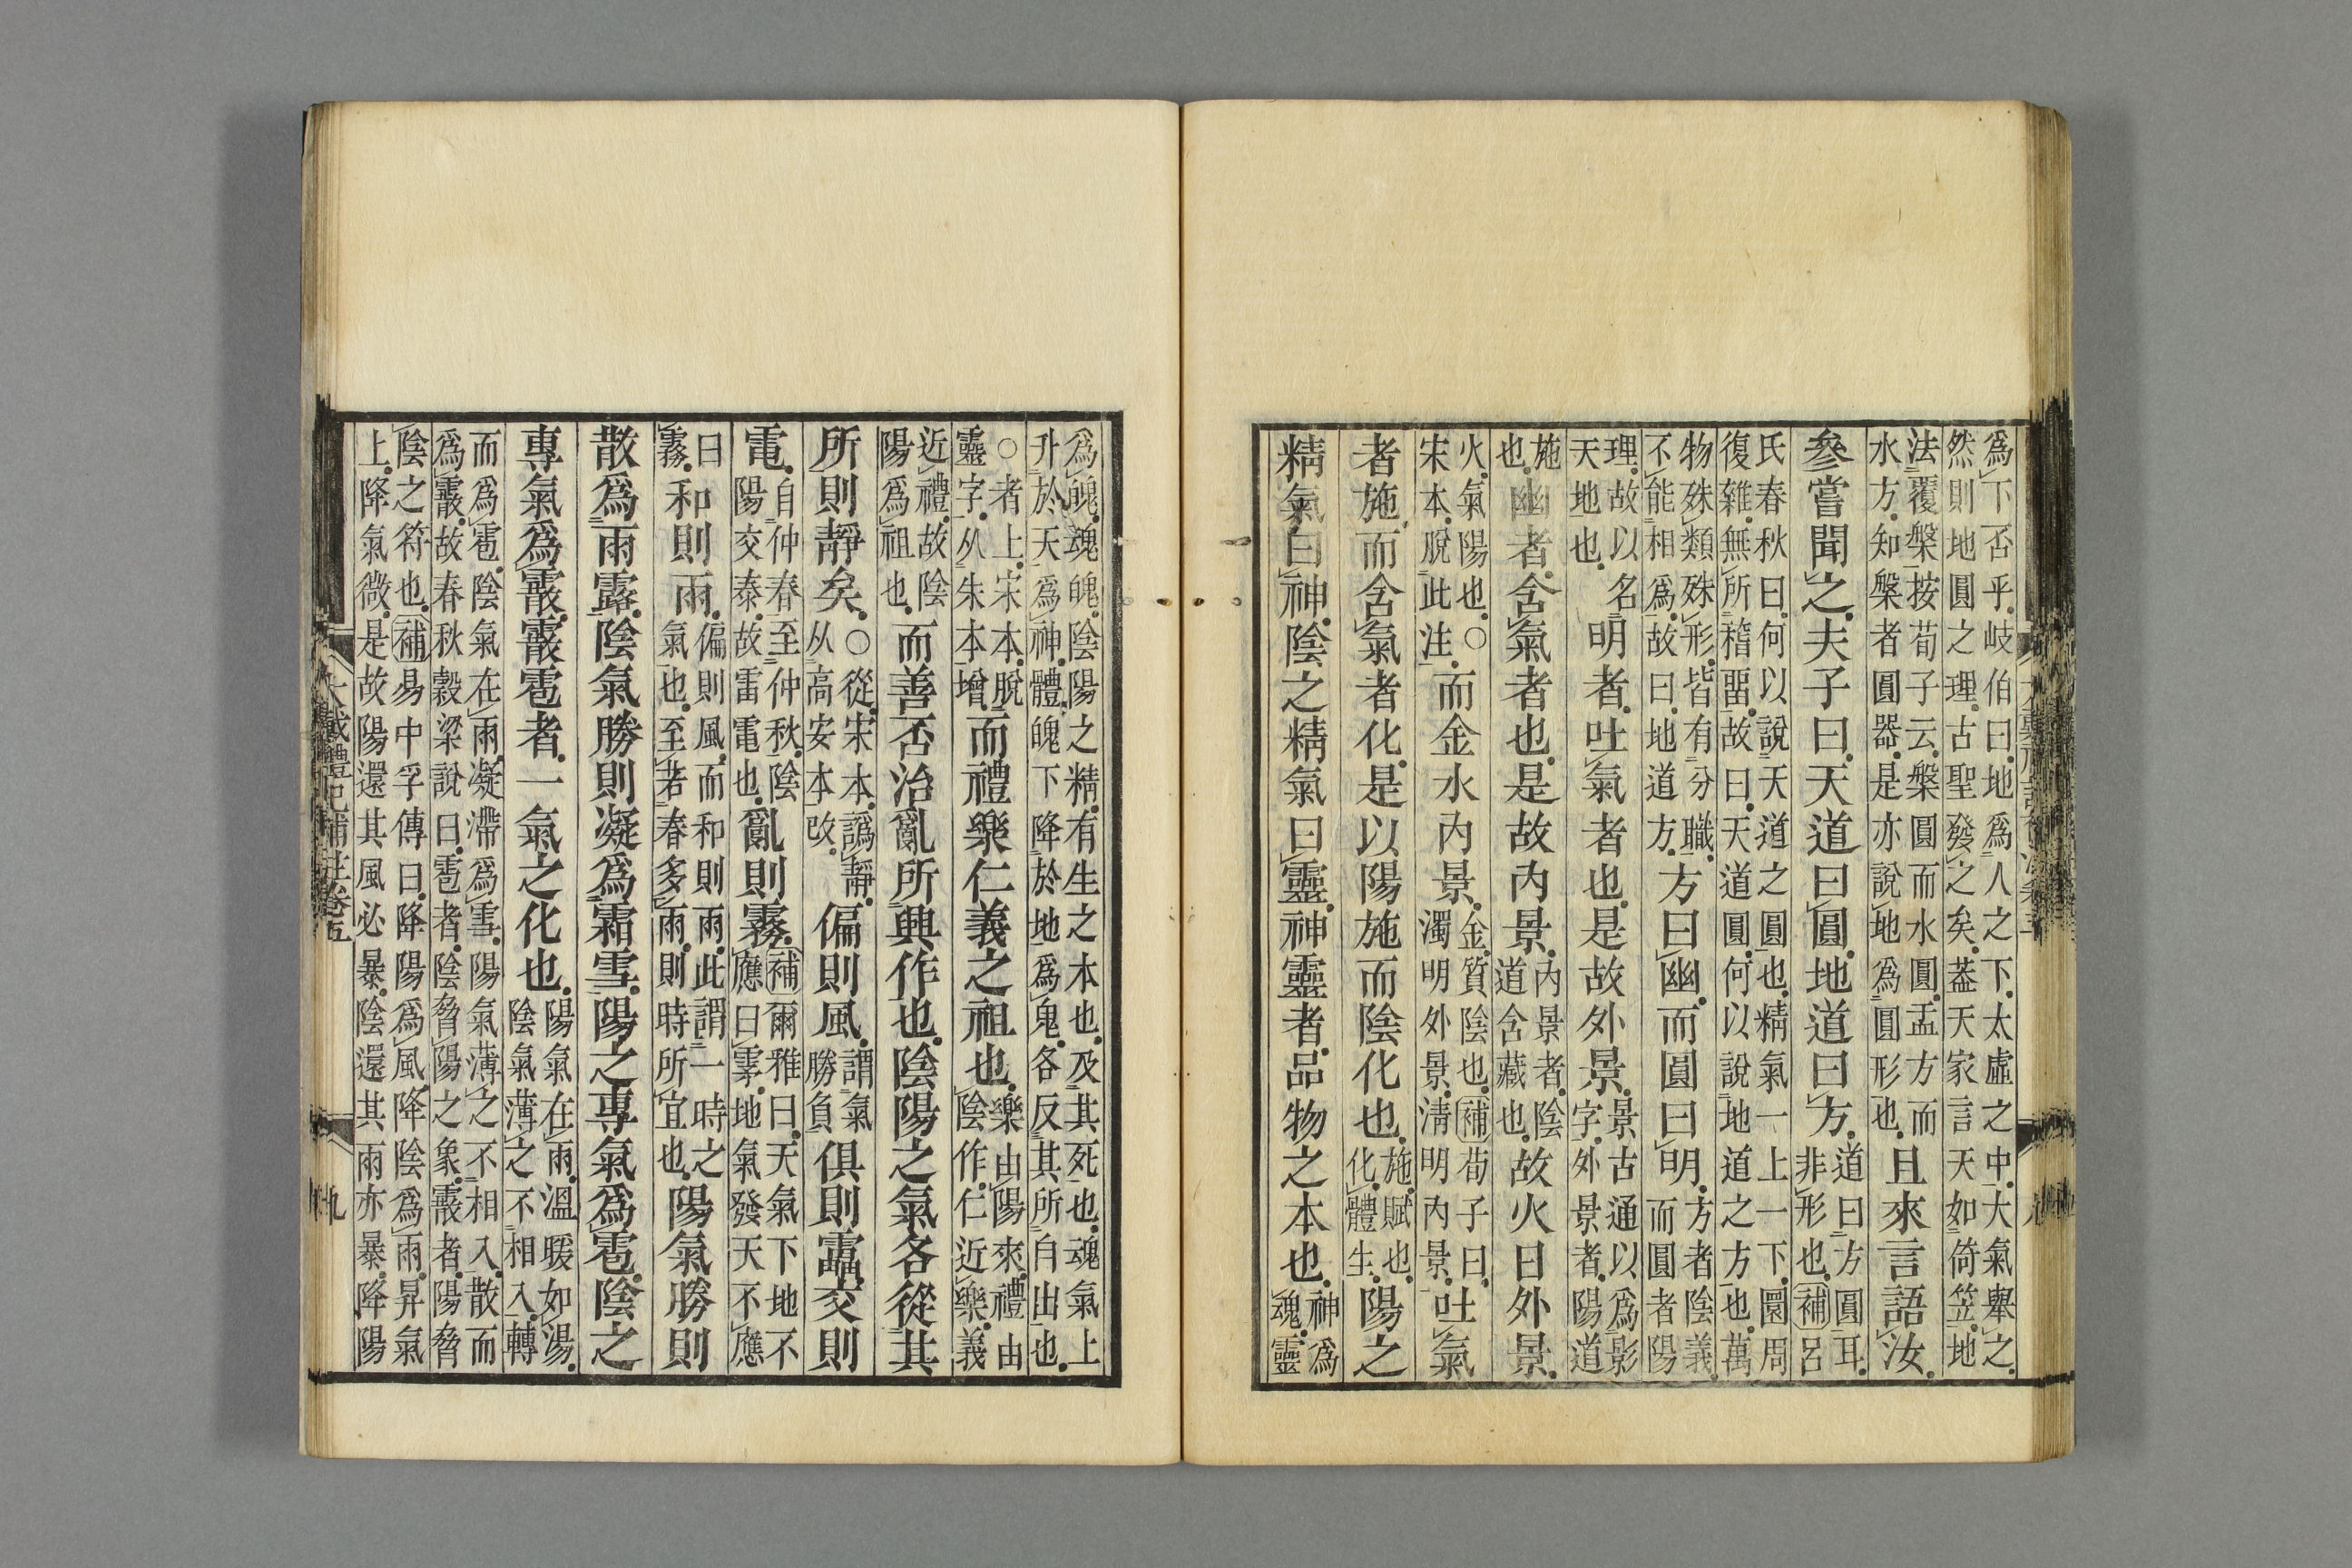 爲下否乎岐伯曰地爲人之下太虛之中大氣舉之
然則地圓之理古聖發之矣葢天家言天如倚笠地
法覆槃按荀子云槃圓而水圓盂方而水方知槃者圓器是亦說地爲圓形也且來言語汝
參嘗聞之夫子曰天道曰圓地道曰方道曰方圓耳非形也補呂
氏春秋曰何以說天道之圓也精氣一上一下圜周
復雜無所稽畱故曰天道圓何以說地道之方也萬
物殊類殊形皆有分職不能相爲故曰地道方方曰幽而圓曰明方者陰義而圓者陽
理故以名天地也明者吐氣者也是故外景景古通以爲影字外景者陽道
施也幽者含氣者也是故內景內景者陰道含藏也故火日外景
火氣陽也○宋本脫此注而金水內景金質陰也補荀子曰濁明外景淸明內景吐氣
者施而含氣者化是以陽施而陰化也施賦也化體生陽之
精氣曰神陰之精氣曰靈神靈者品物之本也神爲魂靈
爲魄魂魄陰陽之精有生之本也及其死也魂氣上
升於天爲神體魄下降於地爲鬼各反其所自出也
○者上宋本脫靈字从朱本增而禮樂仁義之祖也樂由陽來禮由陰作仁近樂義
近禮故陰陽爲祖也而善否治亂所興作也陰陽之氣各從其
所則靜矣○從宋本譌靜从高安本改偏則風謂氣勝負俱則靁交則
電自仲春至仲秋陰陽交泰故雷電也亂則霧補爾雅曰天氣下地不應曰霿地氣發天不應
曰霧和則雨偏則風而和則雨此謂一時之氣也至若春多雨則時所宜也陽氣勝則
散爲雨露陰氣勝則凝爲霜雪陽之專氣爲雹陰之
專氣爲霰霰雹者一氣之化也陽氣在雨溫暖如湯陰氣薄之不相入轉
而爲雹陰氣在雨凝滯爲雪陽氣薄之不相入散而
爲霰故春秋穀梁說曰雹者陰脅陽之象霰者陽脅
陰之符也補易中孚傳曰降陽爲風降陰爲雨昇氣
上降氣微是故陽還其風必暴陰還其雨亦暴降陽
大戴禮記補注卷五
九